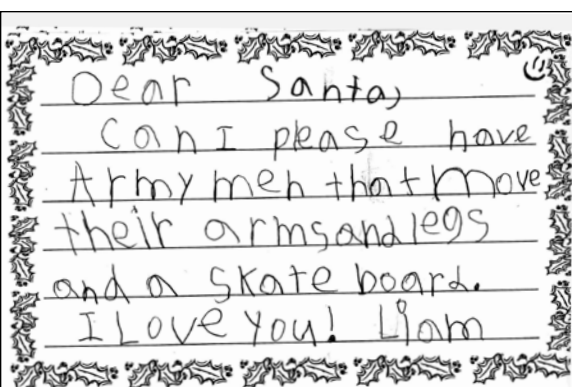 Dear Santa,
Can I please have
Army men that move
their arms and legs
and a skate board.
I Love you! Liam